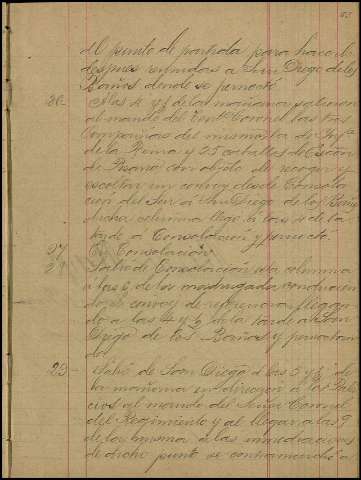 del punto de partida para hacerlo
despues reunidas a San Diego de los
Baños donde se pernoctó
26- A las 4 y ½ de la mañana y salieron
al mando del Tente Coronel las tres
Compañias del
de la Reina y 25 caballos de
de Pizarro con objeto de recoger y
escoltar un convoy desde Consola
ción del Sur á San Diego de los Baños
dicha columna llegó á las 4 de la
tarde á Consolación y pernoctó
27 En Consolación
Salió de Consolación la columna
a las 6 de la madrugada conducien
do el convoy de referencia llegan
do a las 4 y ½ de la tarde a San
Diego de los Baños y pernoctan
do
29- Salió de San Diego á las 5 y ½ de
la mañana en dirección á los Pala
cios al mando del Señor Coronel
del Regimiento y al llegar a las 9
de la misma á las inmediaciones
de dicho punto se contramarchó á